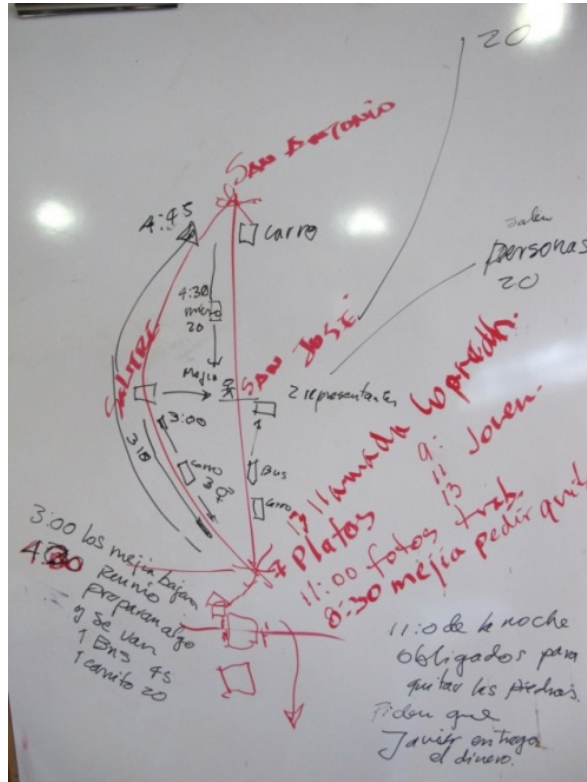 20
San Antonio
4:45
Carro
salen
personas
20
4:30
micro
20
San José
Mejia
SALITRE
2 representantes
3:00
310
Carro
Bus
Carro
13 llamada
9:
11 Joven.
13
7 Platos
11:00 fotos trab.
8:30 mejía pedir quit
3:00 los mejía bajan
4:30 Reunio
preparan algo
y se van
1 Bus 45
1 carrito 20
11:0 de la noche
obligados para
quitar las piedras.
Piden que
Javier entrega
el dinero.